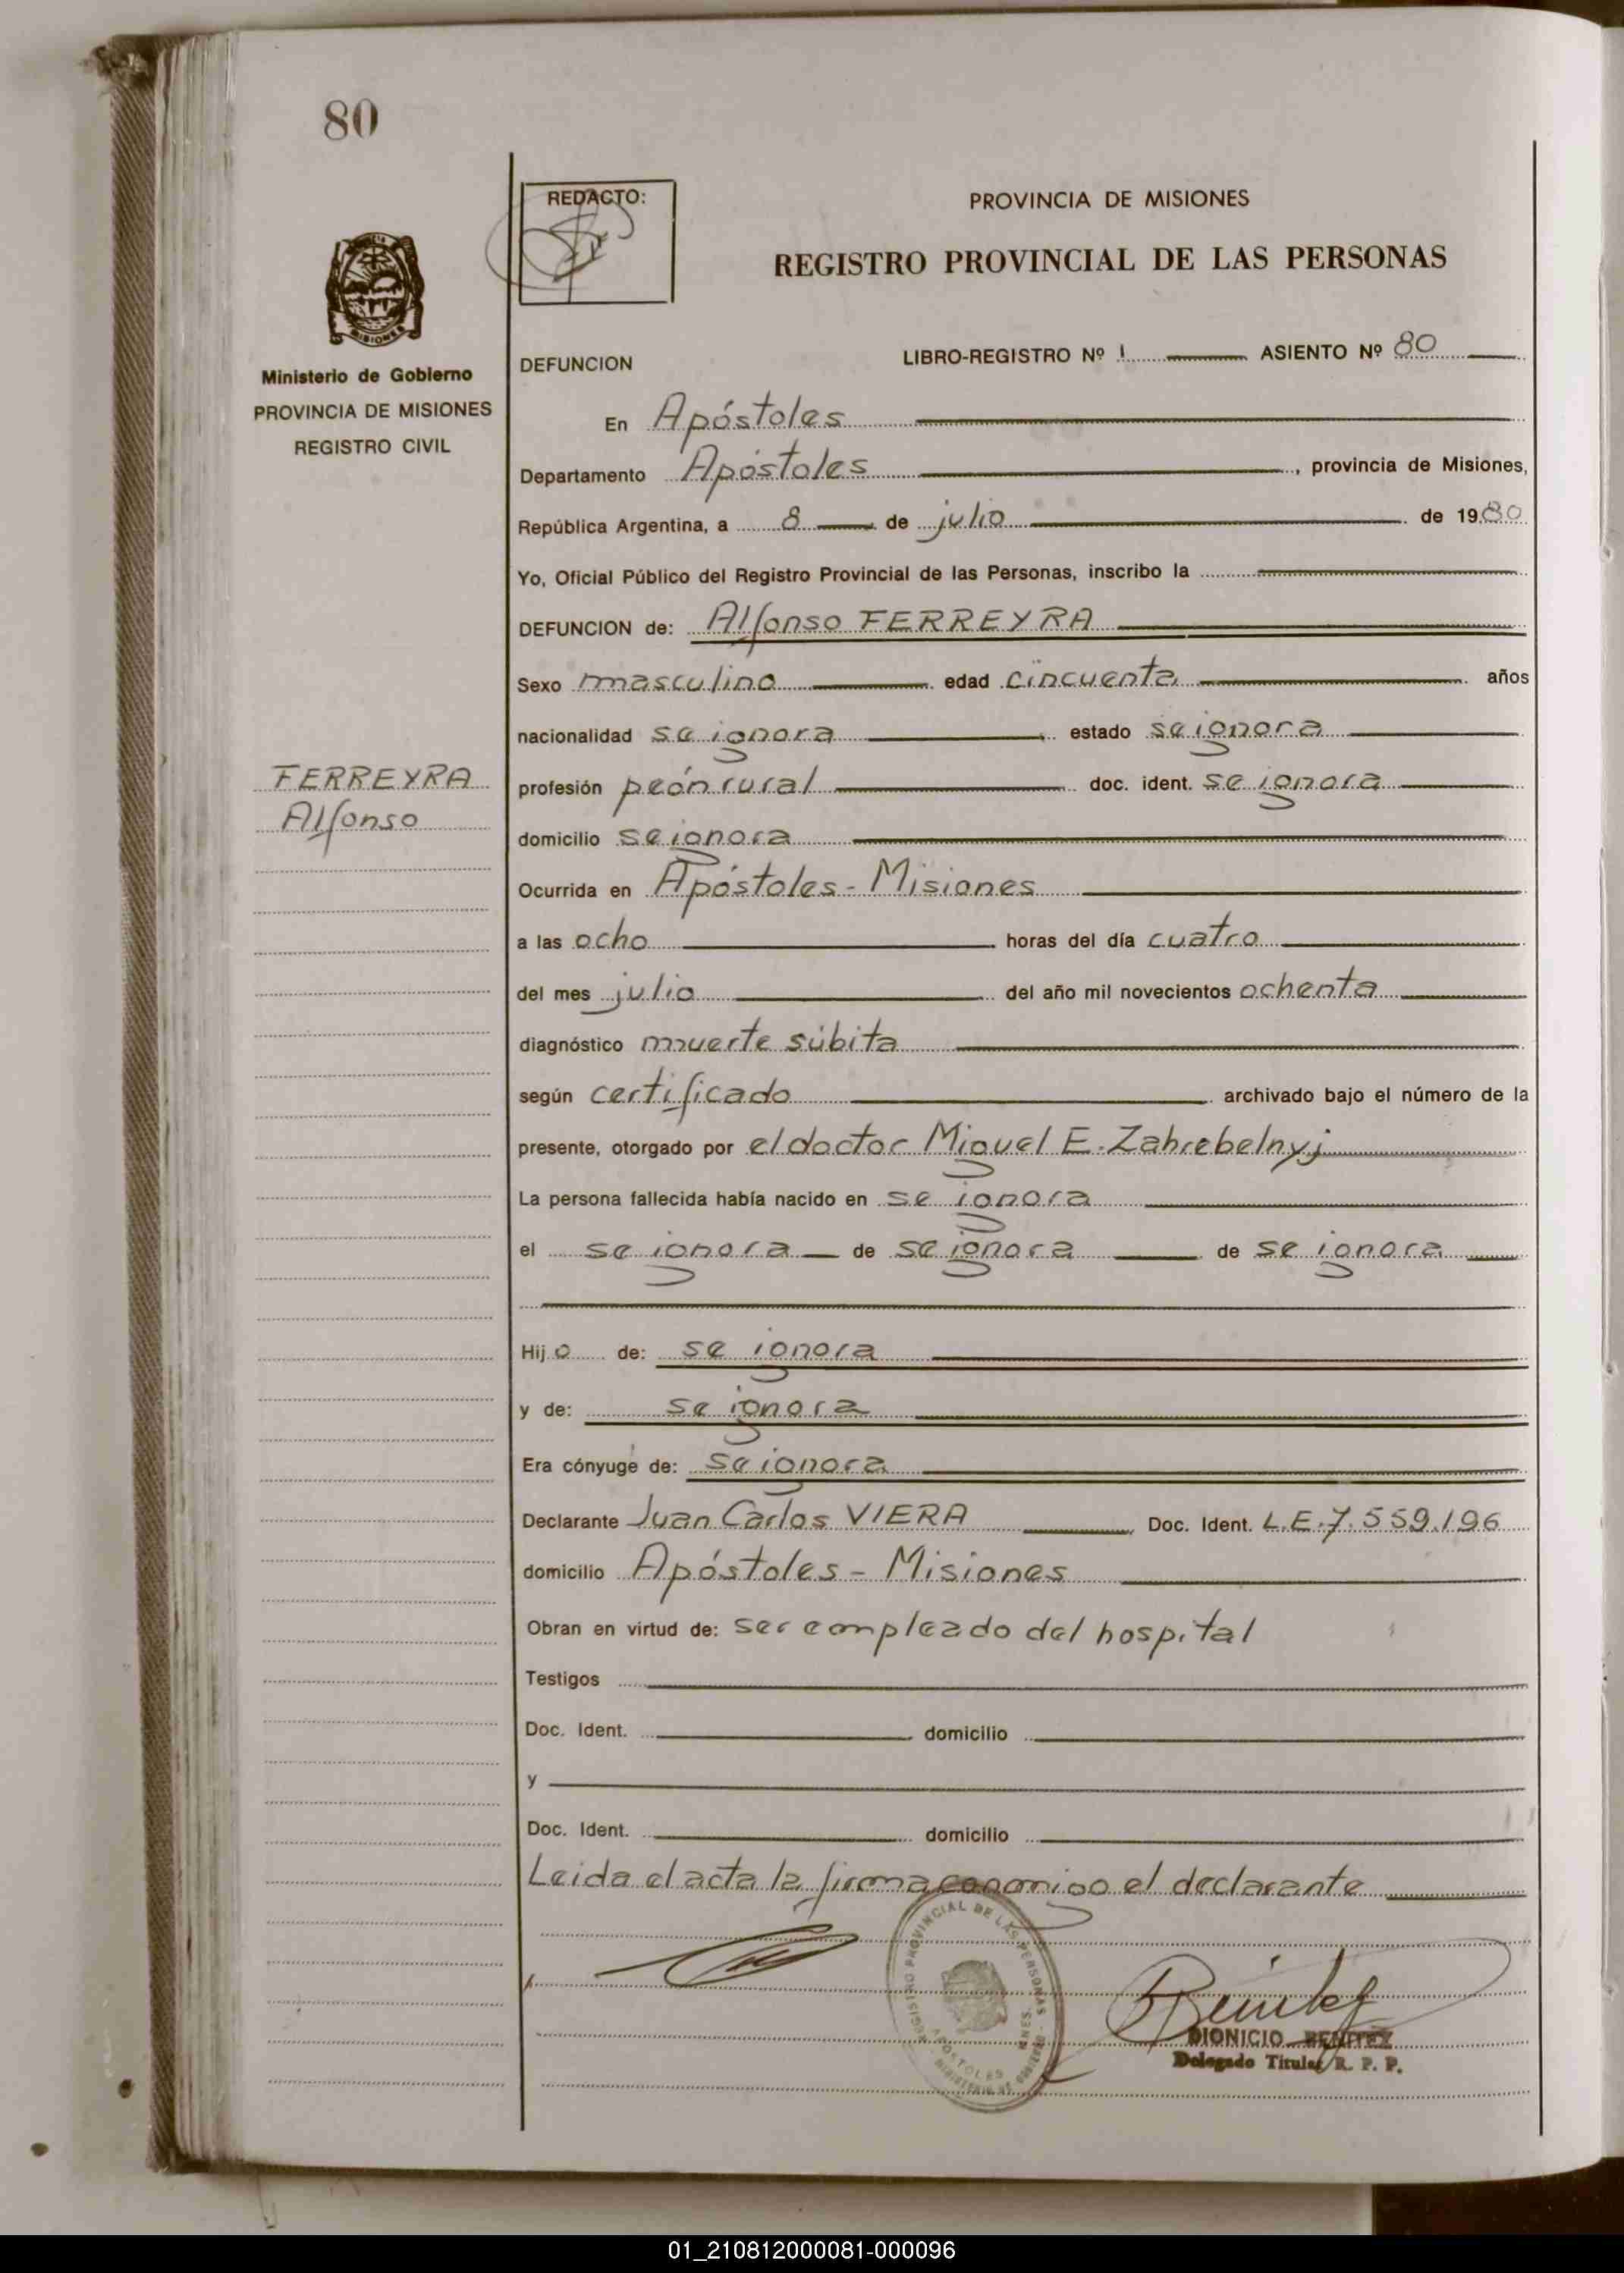 80
REDACTO:
PROVINCIA DE MISIONES
REGISTRO PROVINCIAL DE LAS PERSONAS
MISIONES
Ministerio de Gobierno
PROVINCIA DE MISIONES
REGISTRO CIVIL
DEFUNCION LIBRO-REGISTRO Nº 1 ASIENTO Nº 80
En Apóstoles
Departamento Apóstoles, provincia de Misiones,
República Argentina, a 8 de julio de 1980
Yo, Oficial Público del Registro Provincial de las Personas, inscribo la
DEFUNCION de: Alfonso FERREYRA
Sexo masculino edad cincuenta años
nacionalidad se ignora estado se ignora
FERREYRA
Alfonso
profesión peón rural doc. ident. se ignora
domicilio se ignora
Ocurrida en Apóstoles - Misiones
a las ocho horas del día cuatro
del mes julio del año mil novecientos ochenta
diagnóstico muerte súbita
según certificado archivado bajo el número de la
presente, otorgado por el doctor Miguel E. Zahrebelnyj
La persona fallecida había nacido en se ignora
el se ignora de se ignora de se ignora
Hijo de: se ignora
y de: se ignora
Era cónyuge de: se ignora
Declarante Juan Carlos VIERA Doc. Ident. L.E. 7.559.196
domicilio Apóstoles - Misiones
Obran en virtud de: ser empleado del hospital
Testigos
Doc. Ident. domicilio
y
Doc. Ident. domicilio
Leida el acta la firma conmigo el declarante
REGISTRO PROVINCIAL DE LAS PERSONAS
APOSTOLES
Benitez
DIONICIO BENITEZ
Delegado Titular R. P. P.
01_210812000081-000096